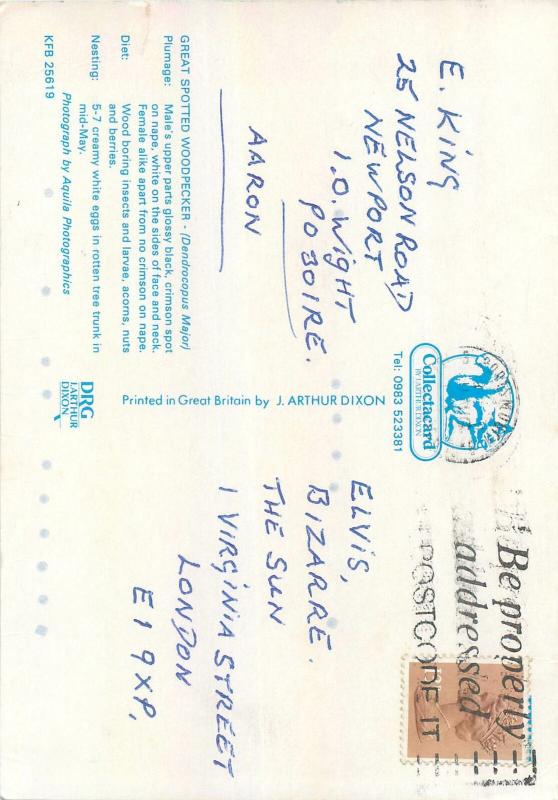 E. KING
25 NELSON ROAD
NEWPORT
I.O. WIGHT
PO30
AARON
GREAT SPOTTED WOODPECKER - (Dendrocopus Major)
Plumage: Male's upper parts glossy black, crimson spot
on nape, white on the sides of face and neck.
Female alike apart from no crimson on nape.
Diet: Wood boring insects and larvae, acorns, nuts
and berries.
Nesting: 5-7 creamy white eggs in rotten tree trunk in
mid-May.
Photograph by Aquila Photographics
KFB 25619
Collectacard
BY J. ARTHUR DIXON
Tel: 0983 523381
Printed in Great Britain by J. ARTHUR DIXON
DRG
J.ARTHUR
DIXON
Be properly
addressed
POSTCODE IT
ELVIS,
BIZARRE.
THE SUN
1 VIRGINIA STREET
LONDON
E1 9XP,